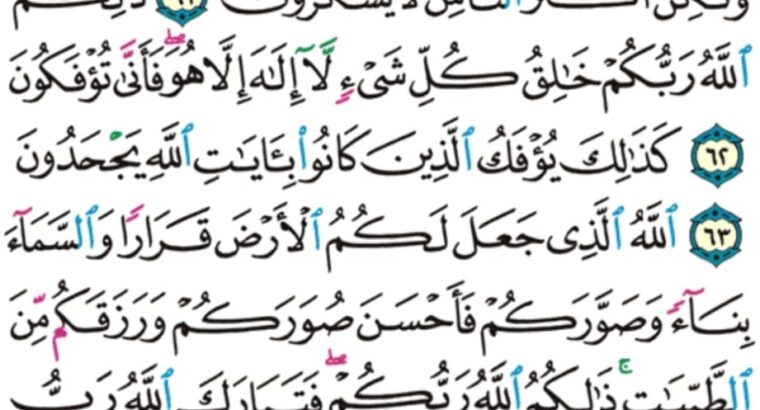 ولكن أكثر الناس لا يشكرون ٦١ ذلكم
ٱللَّهُ رَبُّكُمْ خَٰلِقُ كُلِّ شَىْءٍ لَّآ إِلَٰهَ إِلَّا هُوَ ۖ فَأَنَّىٰ تُؤْفَكُونَ
٦٢ كَذَٰلِكَ يُؤْفَكُ ٱلَّذِينَ كَانُوا۟ بِـَٔايَٰتِ ٱللَّهِ يَجْحَدُونَ
٦٣ ٱللَّهُ ٱلَّذِى جَعَلَ لَكُمُ ٱلْأَرْضَ قَرَارًا وَٱلسَّمَآءَ
بِنَآءً وَصَوَّرَكُمْ فَأَحْسَنَ صُوَرَكُمْ وَرَزَقَكُم مِّنَ
ٱلطَّيِّبَٰتِ ۚ ذَٰلِكُمُ ٱللَّهُ رَبُّكُمْ ۖ فَتَبَارَكَ ٱللَّهُ رَبُّ